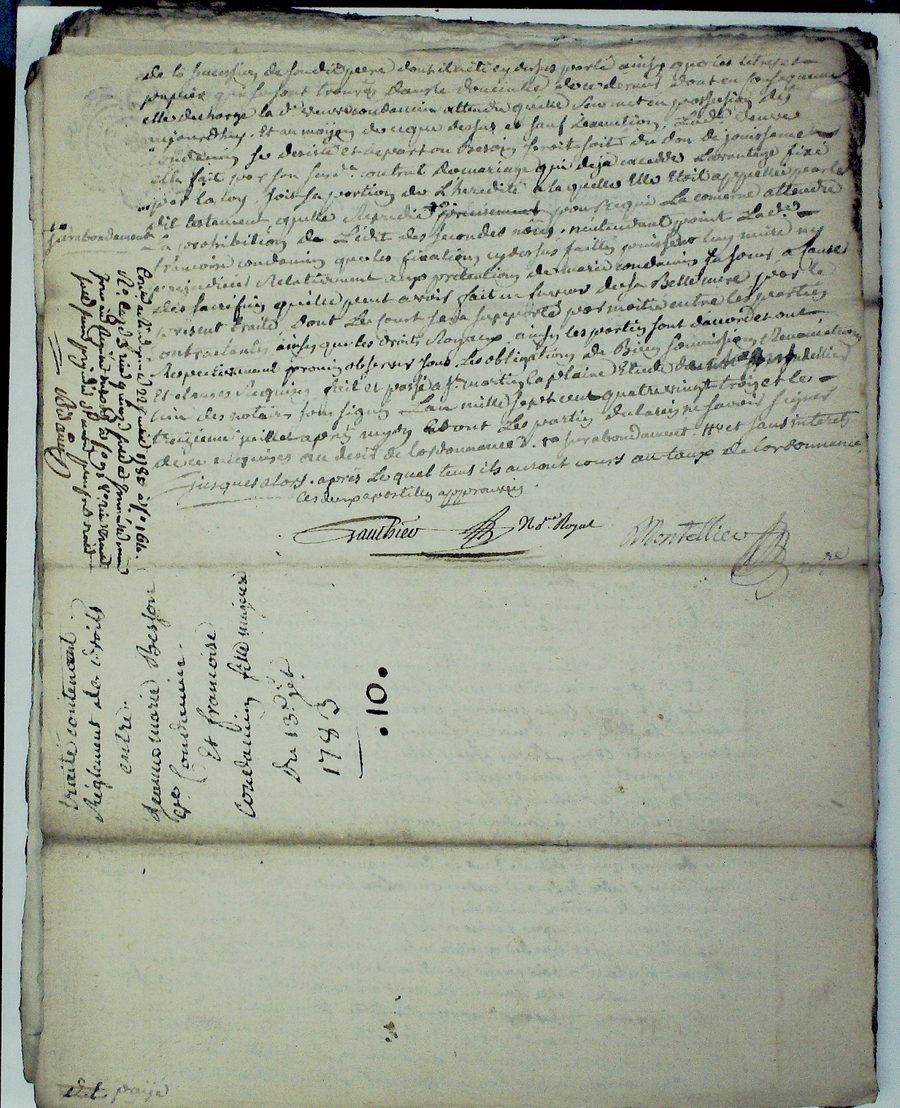 de la succession de soudit pere dont il a été cy dessus parlé ainsy que les titres et
papiers qui se sont trouvés dans le domicile de ce dernier dont en consequence
elle decharge lad. veuve condamin attendu quelle sen met en possession dès
aujourdhuy. Et au moyen de ce que dessus et sauf Lexecution, Lad. veuve
condamin se desiste et depart en Besoin seroit du don de jouissance
elle fait par son contrat de mariage qui deja excede Lavantage fixé
par la loy, soit sa portion de L'heredité a la quelle Elle Etoit appellée par led.
dit testament quelle Repudie pour ce que La concerne attendu
La prohibition de L'édit des secondes noces, nentendant point Lad.
francoise condamin que les fixations cy dessus faittes puissent luy nuire ny
prejudicier Relativement aux pretentions de marie condamin sa soeur, a cause
des sacrifices quelle peut avoir fait en faveur de sa Belle mere par le
present traité, Dont Le cout sera supporté par moitié entre les parties
contractantes ainsy que les droits Royaux. ainsy les parties sont d'accord et ont
Respectivement promis observer sous Les obligations de Biens soumissions Renonciations
Et clauses Requises fait et passé a St martin La plaine Etude de
L'un des notaires sous signés L'an mille sept cent quatre vingt trois et le
treizieme juillet après mydy et ont les parties declaré ne savoir signer
de ce enquises au desir de Lordonnance. + surabondament. ++ et sans interets
jusques alors. après Le quel tems ils auront cours au taux de Lordonnance
ces deux apostilles approuvées.
Gauthier Nre Royal Montellier nre
+ surabondament
Ridaux
traité contenant
Reglement de droits
entre.
Jeanne marie Besson
Ve Condamin.
Et francoise
Condamin fille majeure
Du 13 jet
1783
.10.
payé